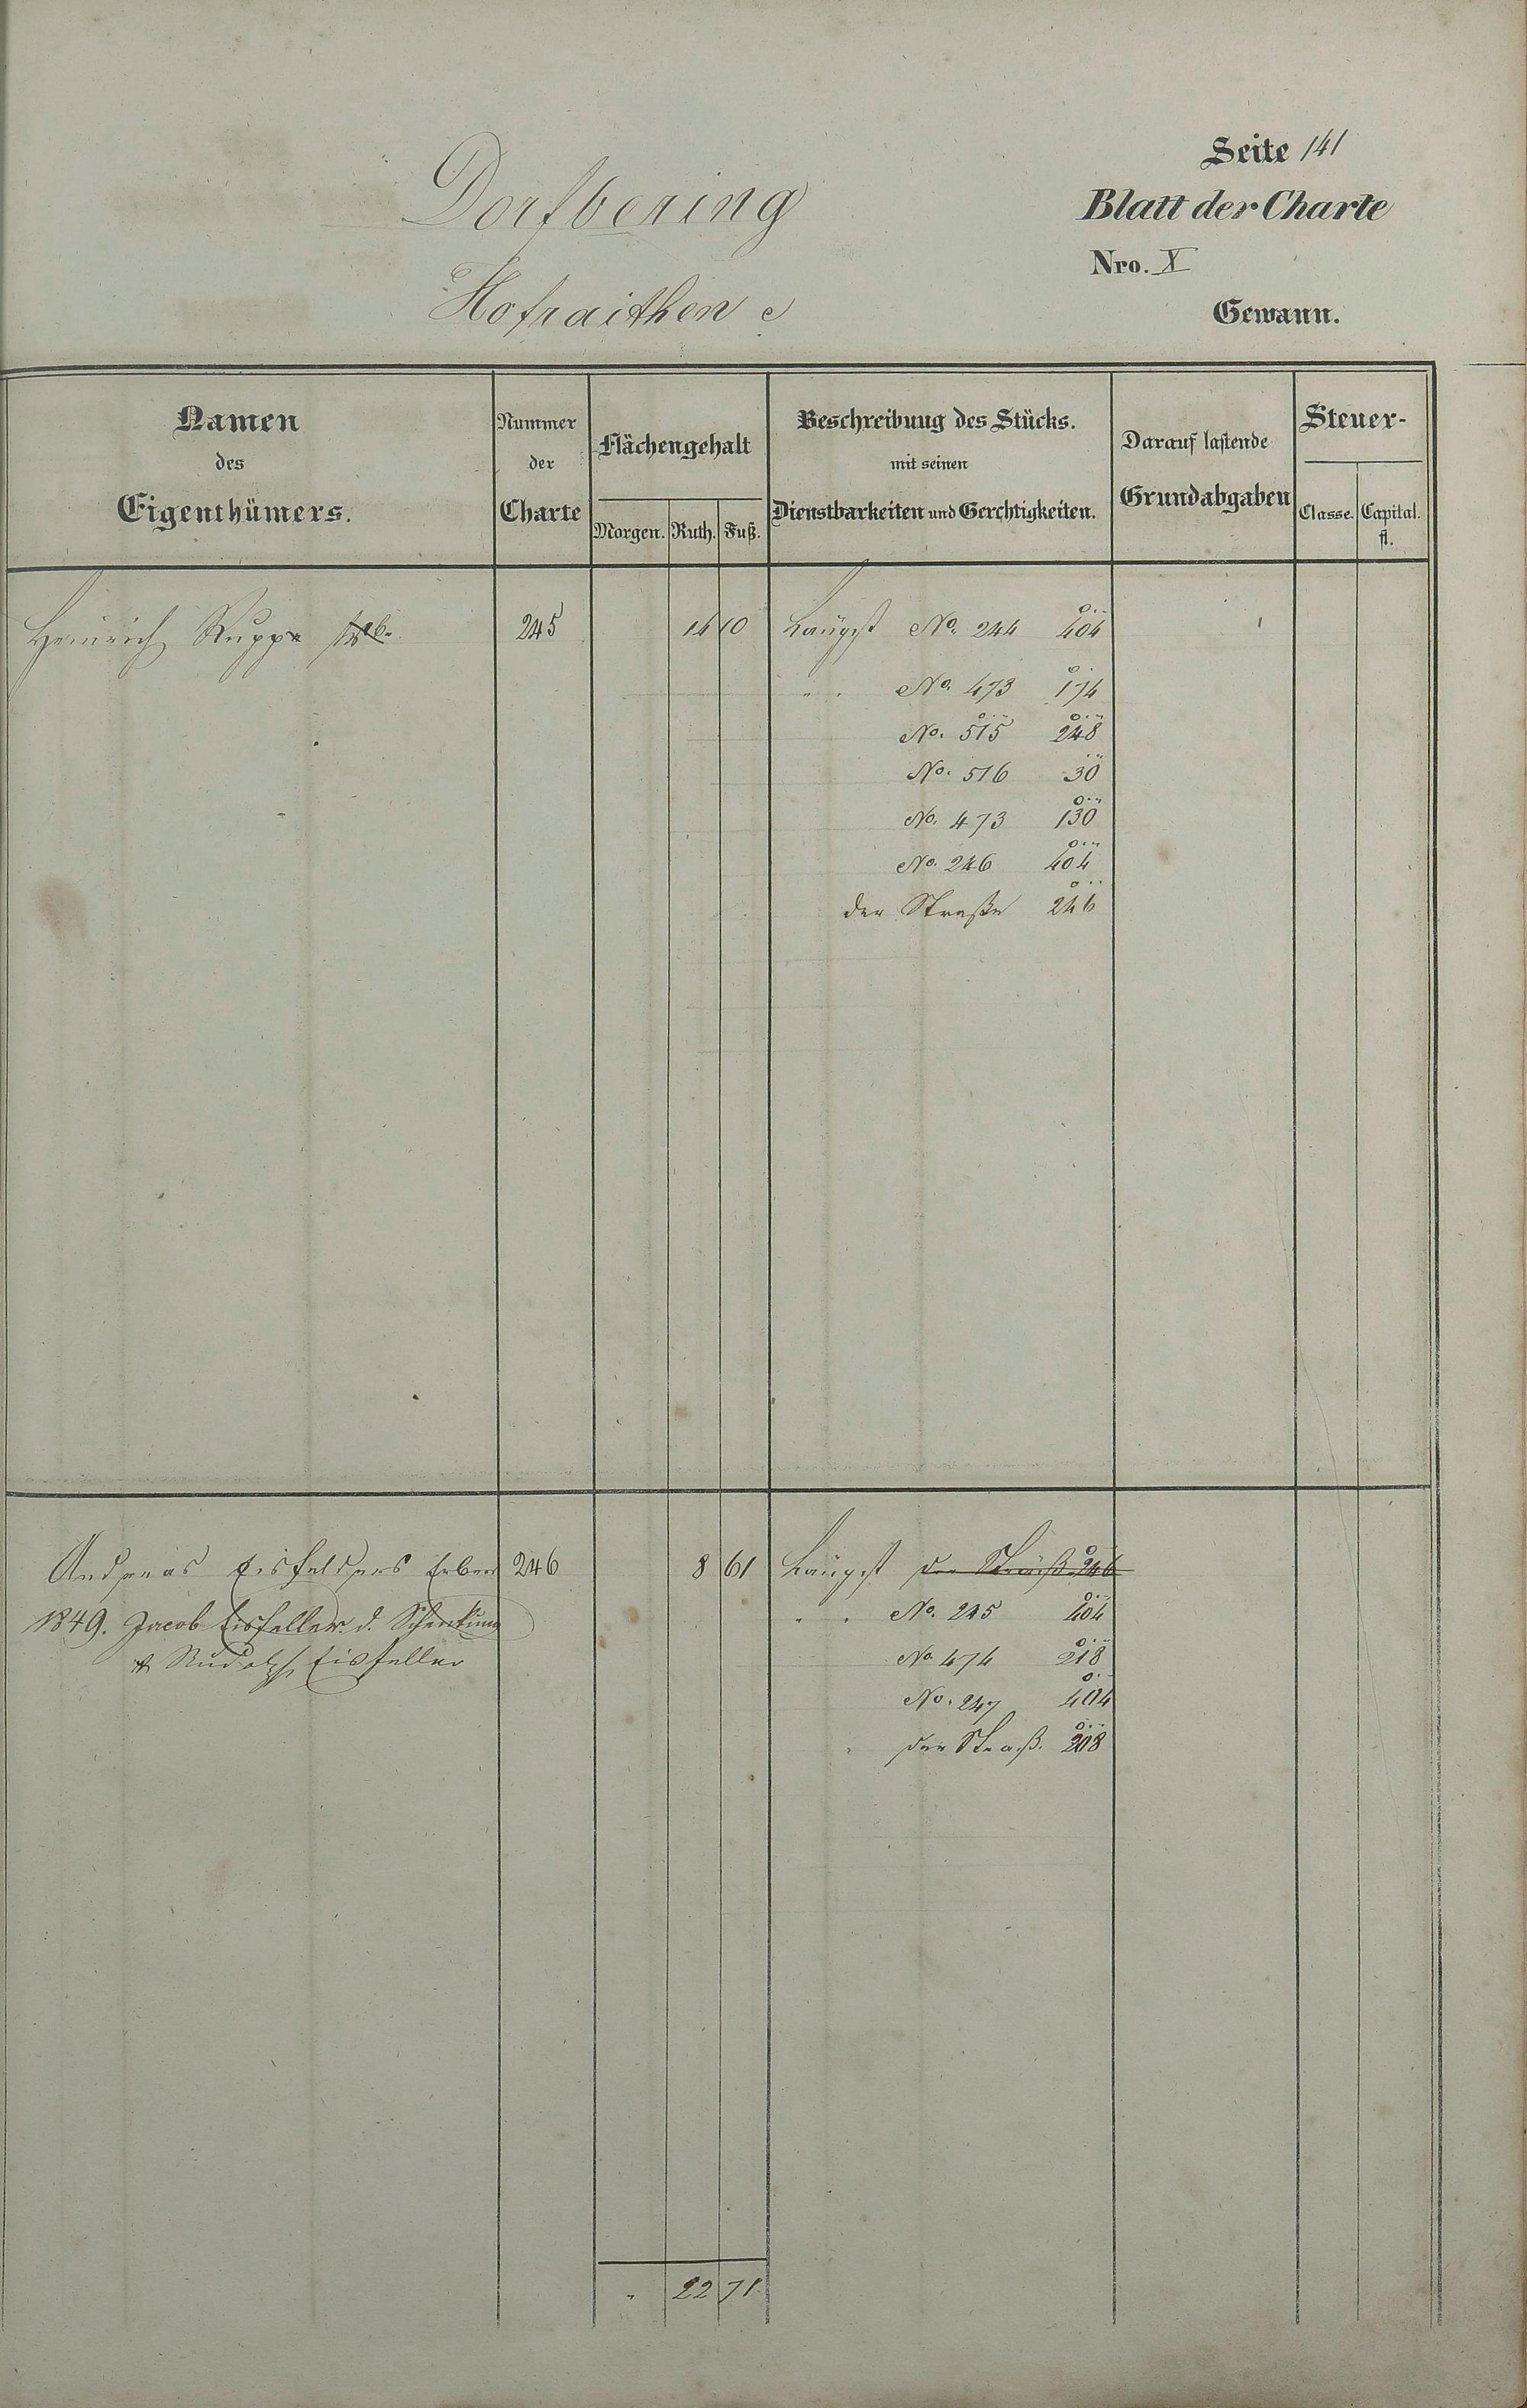 Seite 141
Dorfbering
Blatt der Charte
Nro. X
Hofraithen
Gewann.
Namen des Eigenthümers.
Nummer der Charte
Flächengehalt
Morgen. Ruth. Fuß.
Beschreibung des Stücks. mit seinen Dienstbarkeiten und Gerchtigkeiten.
Darauf lastende Grundabgaben
Steuer-
Classe. Capital. fl.
Heinrich Rupp 245 14 10 Laüngst No. 244 404
" No. 473 174
No. 515 248
No. 516 30
No. 473 130
No. 246 404
der Straße 246
Andreas Eisfelders Erben 246 8 61 Laüngst der Straß 246
1849. Jacob Eisfeller d. Schenkung " No. 245 404
& Rudolph Eisfeller No 474 218
No. 247 404
der Straß. 208
" 22 71